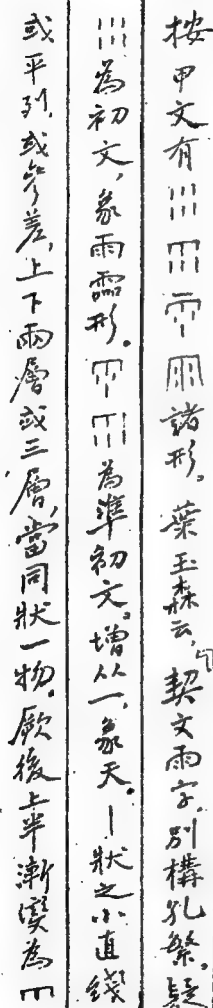 按甲文有諸形。葉玉森云，「契文雨字。別構孔繁。疑
為初文，象雨霝形。為準初文。增从一，象天。丨狀之小直綫
或平列，或參差，上下兩層或三層，當同狀一物。厥後上半漸變為